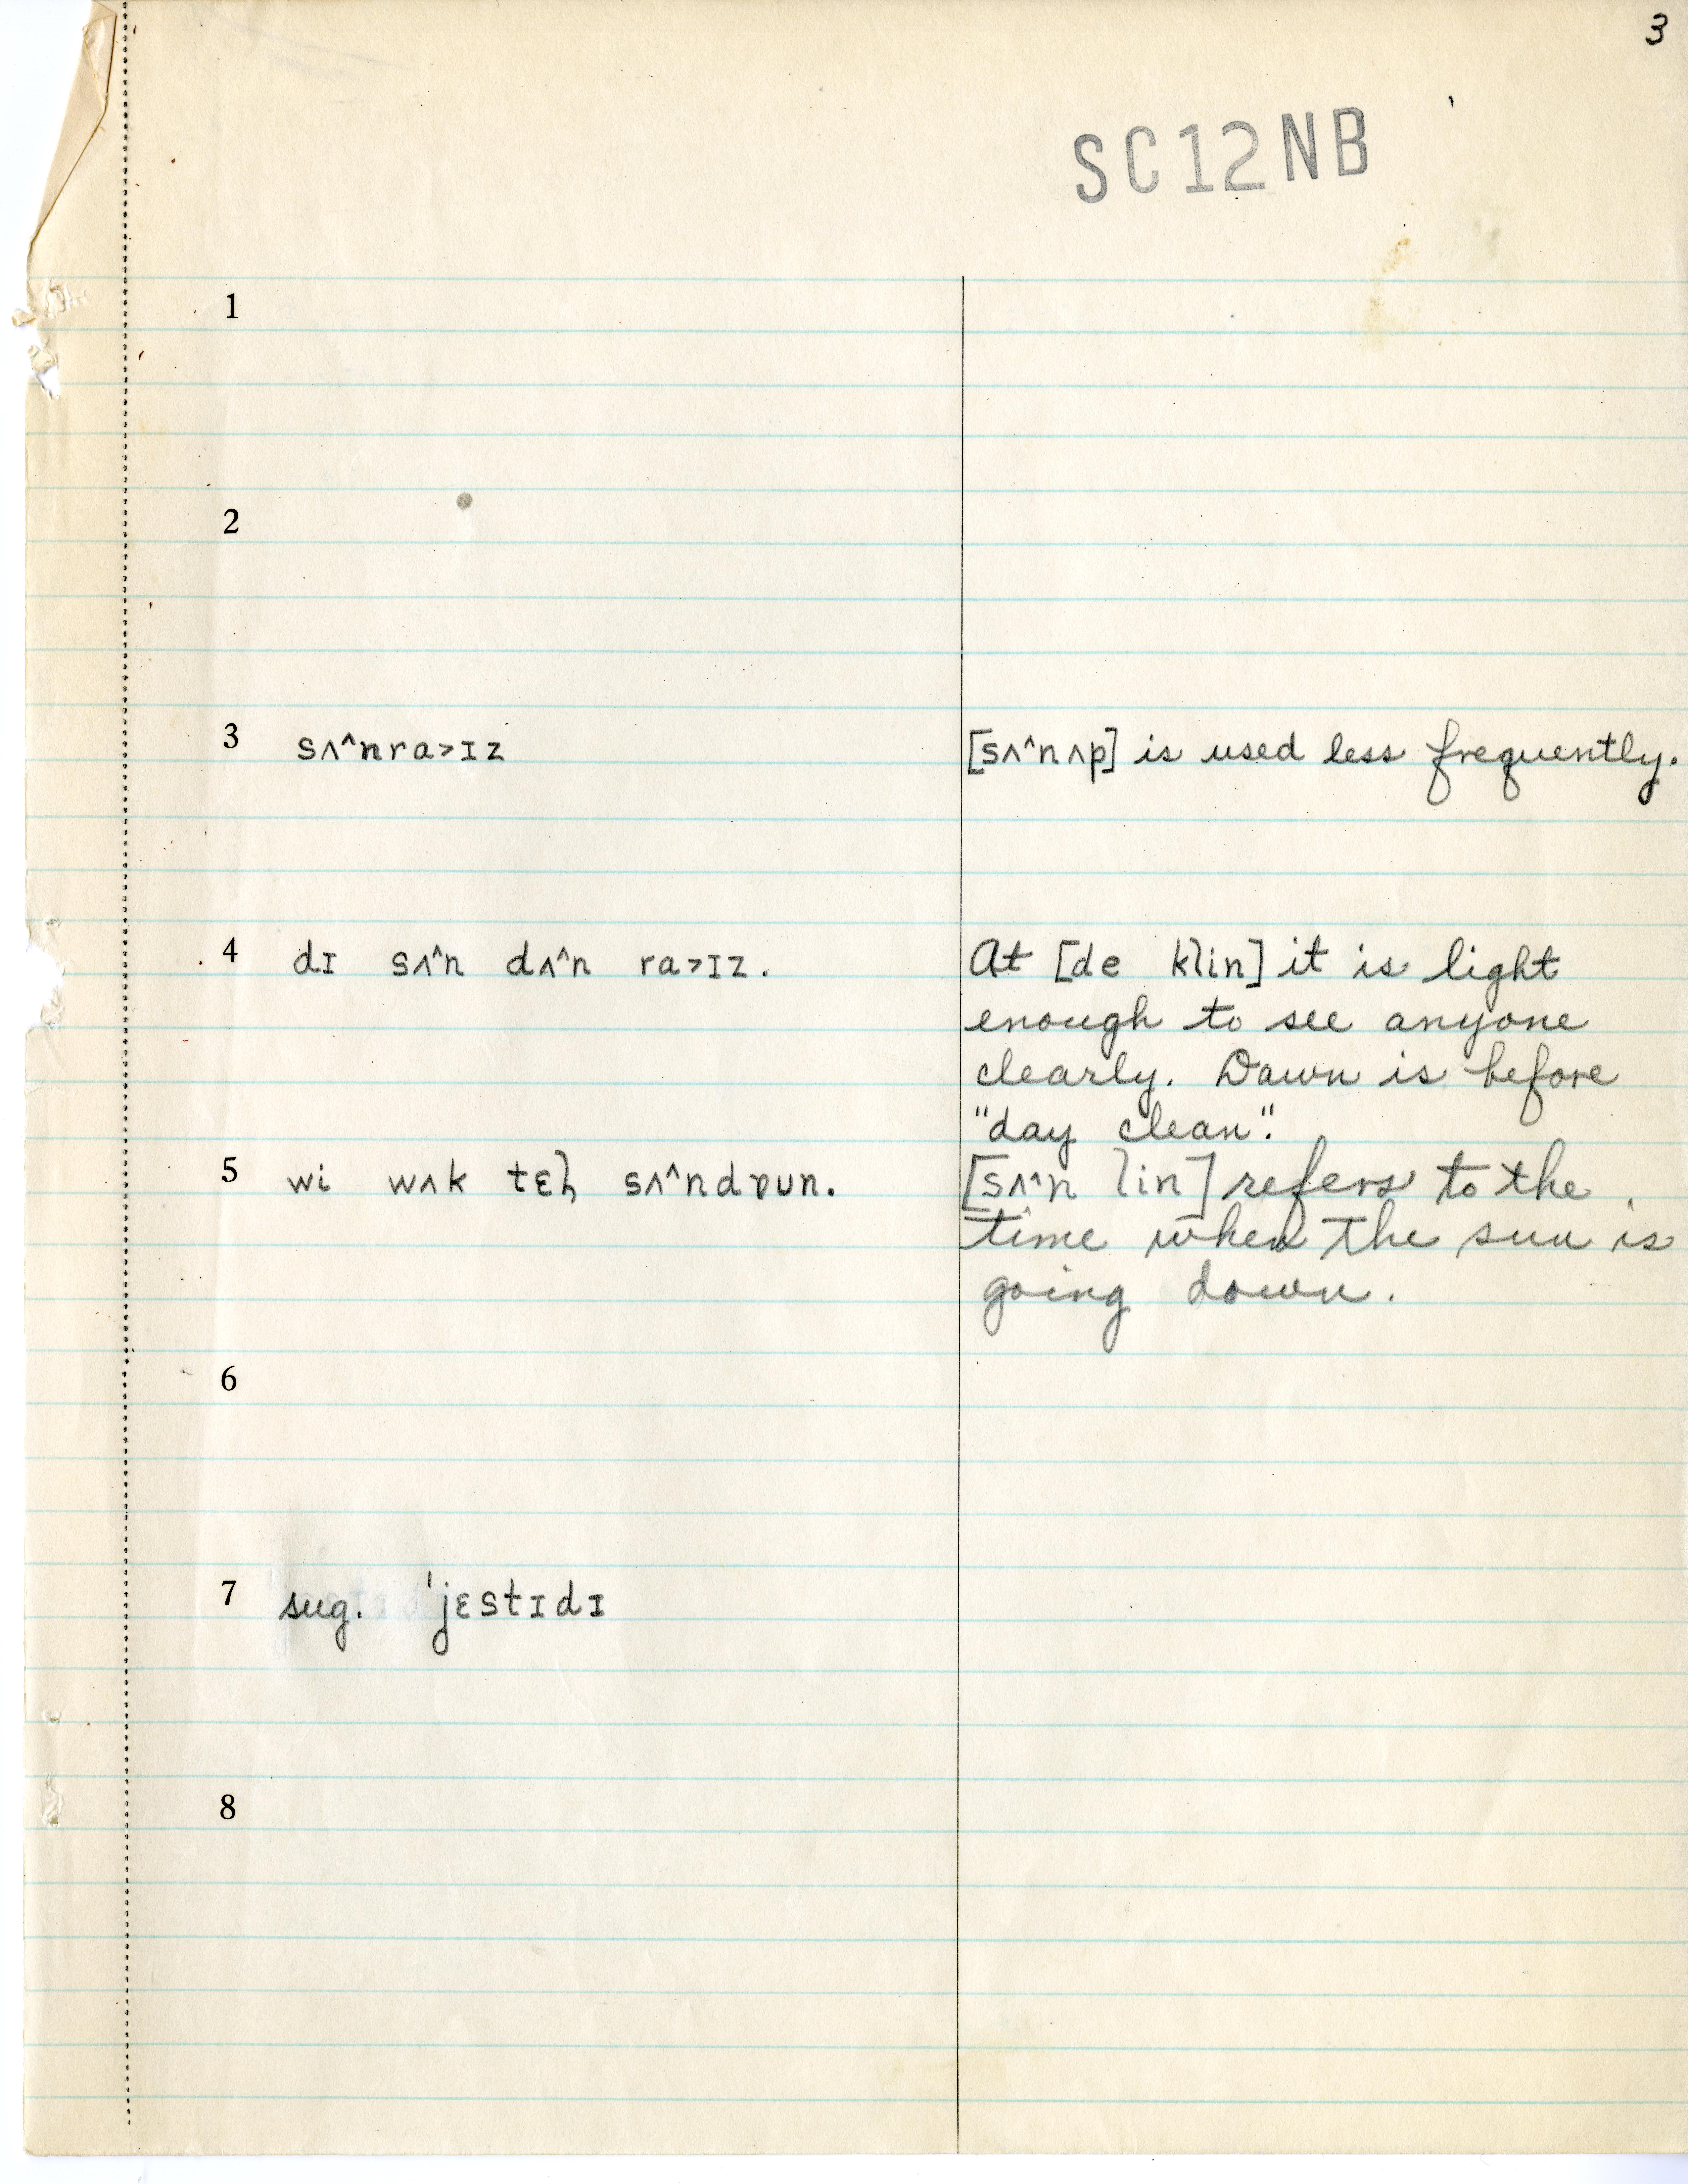 3
SC12NB
1
2
3 sʌ^nra>ɪz [sʌ^nʌp] is used less frequently.
4 dɪ sʌ^n dʌ^n ra>ɪz. At [de klin] it is light
enough to see anyone
clearly. Dawn is before
"day clean".
5 wi wʌk tɛl̡ sʌ^ndɒun. [sʌ^n lin] refers to the
time when the sun is
going down.
6
7 sug. 'jɛstɪdɪ
8